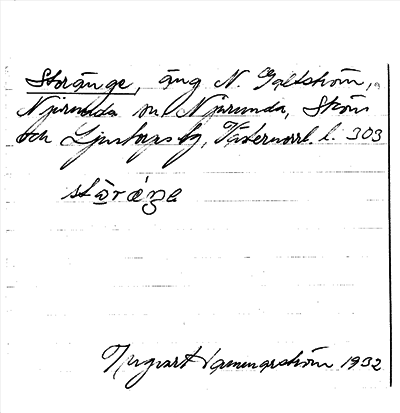 Storänge, äng N. Galtström,
Njurunda sn Njurunda, Sköns
och Ljustorps tg, Västernorrl. l. 303
stɷ̀ráŋe
Hammarström 1932